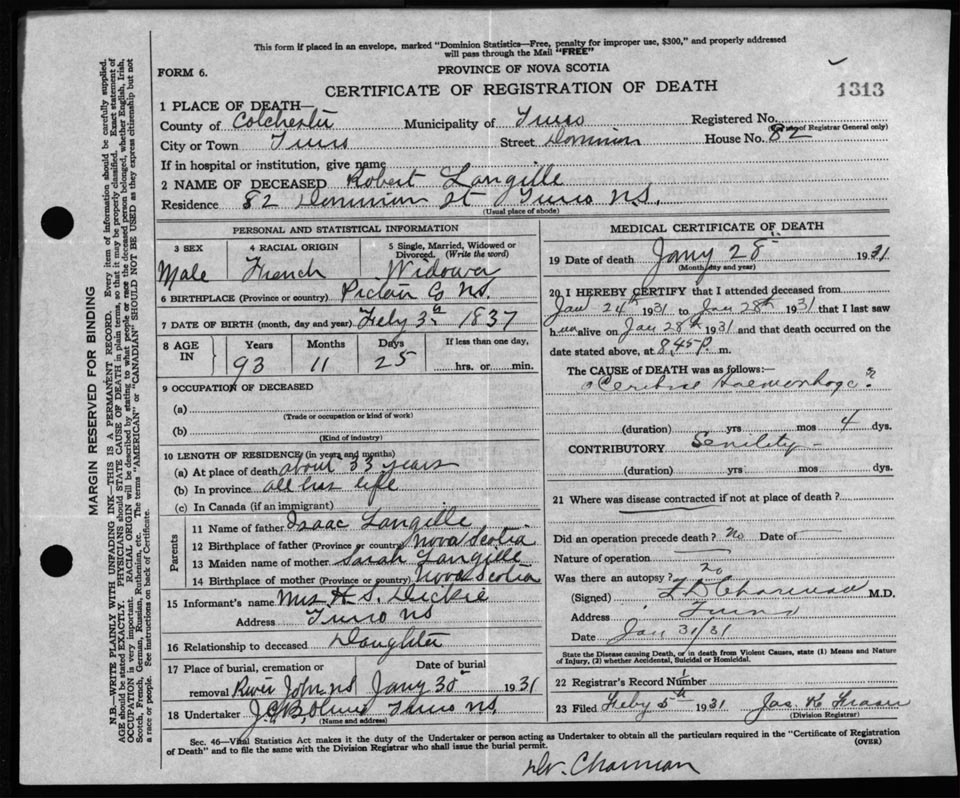 This form if placed in an envelope, marked "Dominion Statistics—Free, penalty for improper use, $300," and properly addressed
will pass through the Mail "FREE"
FORM 6.
PROVINCE OF NOVA SCOTIA
CERTIFICATE OF REGISTRATION OF DEATH
1313
1 PLACE OF DEATH—
County of Colchester Municipality of Truro Registered No.
(For use of Registrar General only)
City or Town Truro Street Dominion House No. 82
If in hospital or institution, give name
2 NAME OF DECEASED Robert Langille
Residence 82 Dominion St Truro N.S.
(Usual place of abode)
PERSONAL AND STATISTICAL INFORMATION
3 SEX 4 RACIAL ORIGIN 5 Single, Married, Widowed or Divorced. (Write the word)
Male French Widower
6 BIRTHPLACE (Province or country) Pictou Co N.S.
7 DATE OF BIRTH (month, day and year) Feby 3rd 1837
8 AGE IN Years Months Days If less than one day,
93 11 25 hrs. or min.
9 OCCUPATION OF DECEASED
(a)
(Trade or occupation or kind of work)
(b)
(Kind of industry)
10 LENGTH OF RESIDENCE (in years and months)
(a) At place of death about 33 years
(b) In province all his life
(c) In Canada (if an immigrant)
Parents
11 Name of father Isaac Langille
12 Birthplace of father (Province or country) Nova Scotia
13 Maiden name of mother Sarah Langille
14 Birthplace of mother (Province or country) Nova Scotia
15 Informant's name Mrs H. S. Dickie
Address Truro NS
16 Relationship to deceased Daughter
17 Place of burial, cremation or removal Date of burial
River John NS Jany 30 1931
18 Undertaker Truro NS.
(Name and address)
MEDICAL CERTIFICATE OF DEATH
19 Date of death Jany 28 1931
(Month, day and year)
20 I HEREBY CERTIFY that I attended deceased from
Jan 24th 1931 to Jan 28th 1931 that I last saw
h im alive on Jan 28th 1931 and that death occurred on the
date stated above, at 8.45 P. m.
The CAUSE of DEATH was as follows:—
Haemorrhage
(duration) yrs mos 4 dys.
CONTRIBUTORY Senility
(duration) yrs mos dys.
21 Where was disease contracted if not at place of death?
Did an operation precede death? No Date of
Nature of operation
Was there an autopsy? No
(Signed) M.D.
Address Truro
Date Jan 31/31
State the Disease causing Death, or in death from Violent Causes, state (1) Means and Nature
of Injury, (2) whether Accidental, Suicidal or Homicidal.
22 Registrar's Record Number
23 Filed Feby 5th 1931 Jas. K Fraser
(Division Registrar)
Sec. 46—Vital Statistics Act makes it the duty of the Undertaker or person acting as Undertaker to obtain all the particulars required in the "Certificate of Registration
of Death" and to file the same with the Division Registrar who shall issue the burial permit.
(OVER)
Dr. Charman
MARGIN RESERVED FOR BINDING
N.B.—WRITE PLAINLY WITH UNFADING INK—THIS IS A PERMANENT RECORD. Every item of information should be carefully supplied.
AGE should be stated EXACTLY. PHYSICIANS should STATE CAUSE OF DEATH in plain terms, so that it may be properly classified. Exact statement of
OCCUPATION is very important. RACIAL ORIGIN will be described by stating to what people or race the deceased person belonged, whether English, Irish,
Scotch, French, German, Russian, Ruthenian, etc. The terms "AMERICAN" or "CANADIAN" SHOULD NOT BE USED as they express citizenship but not
a race or people. See instructions on back of Certificate.